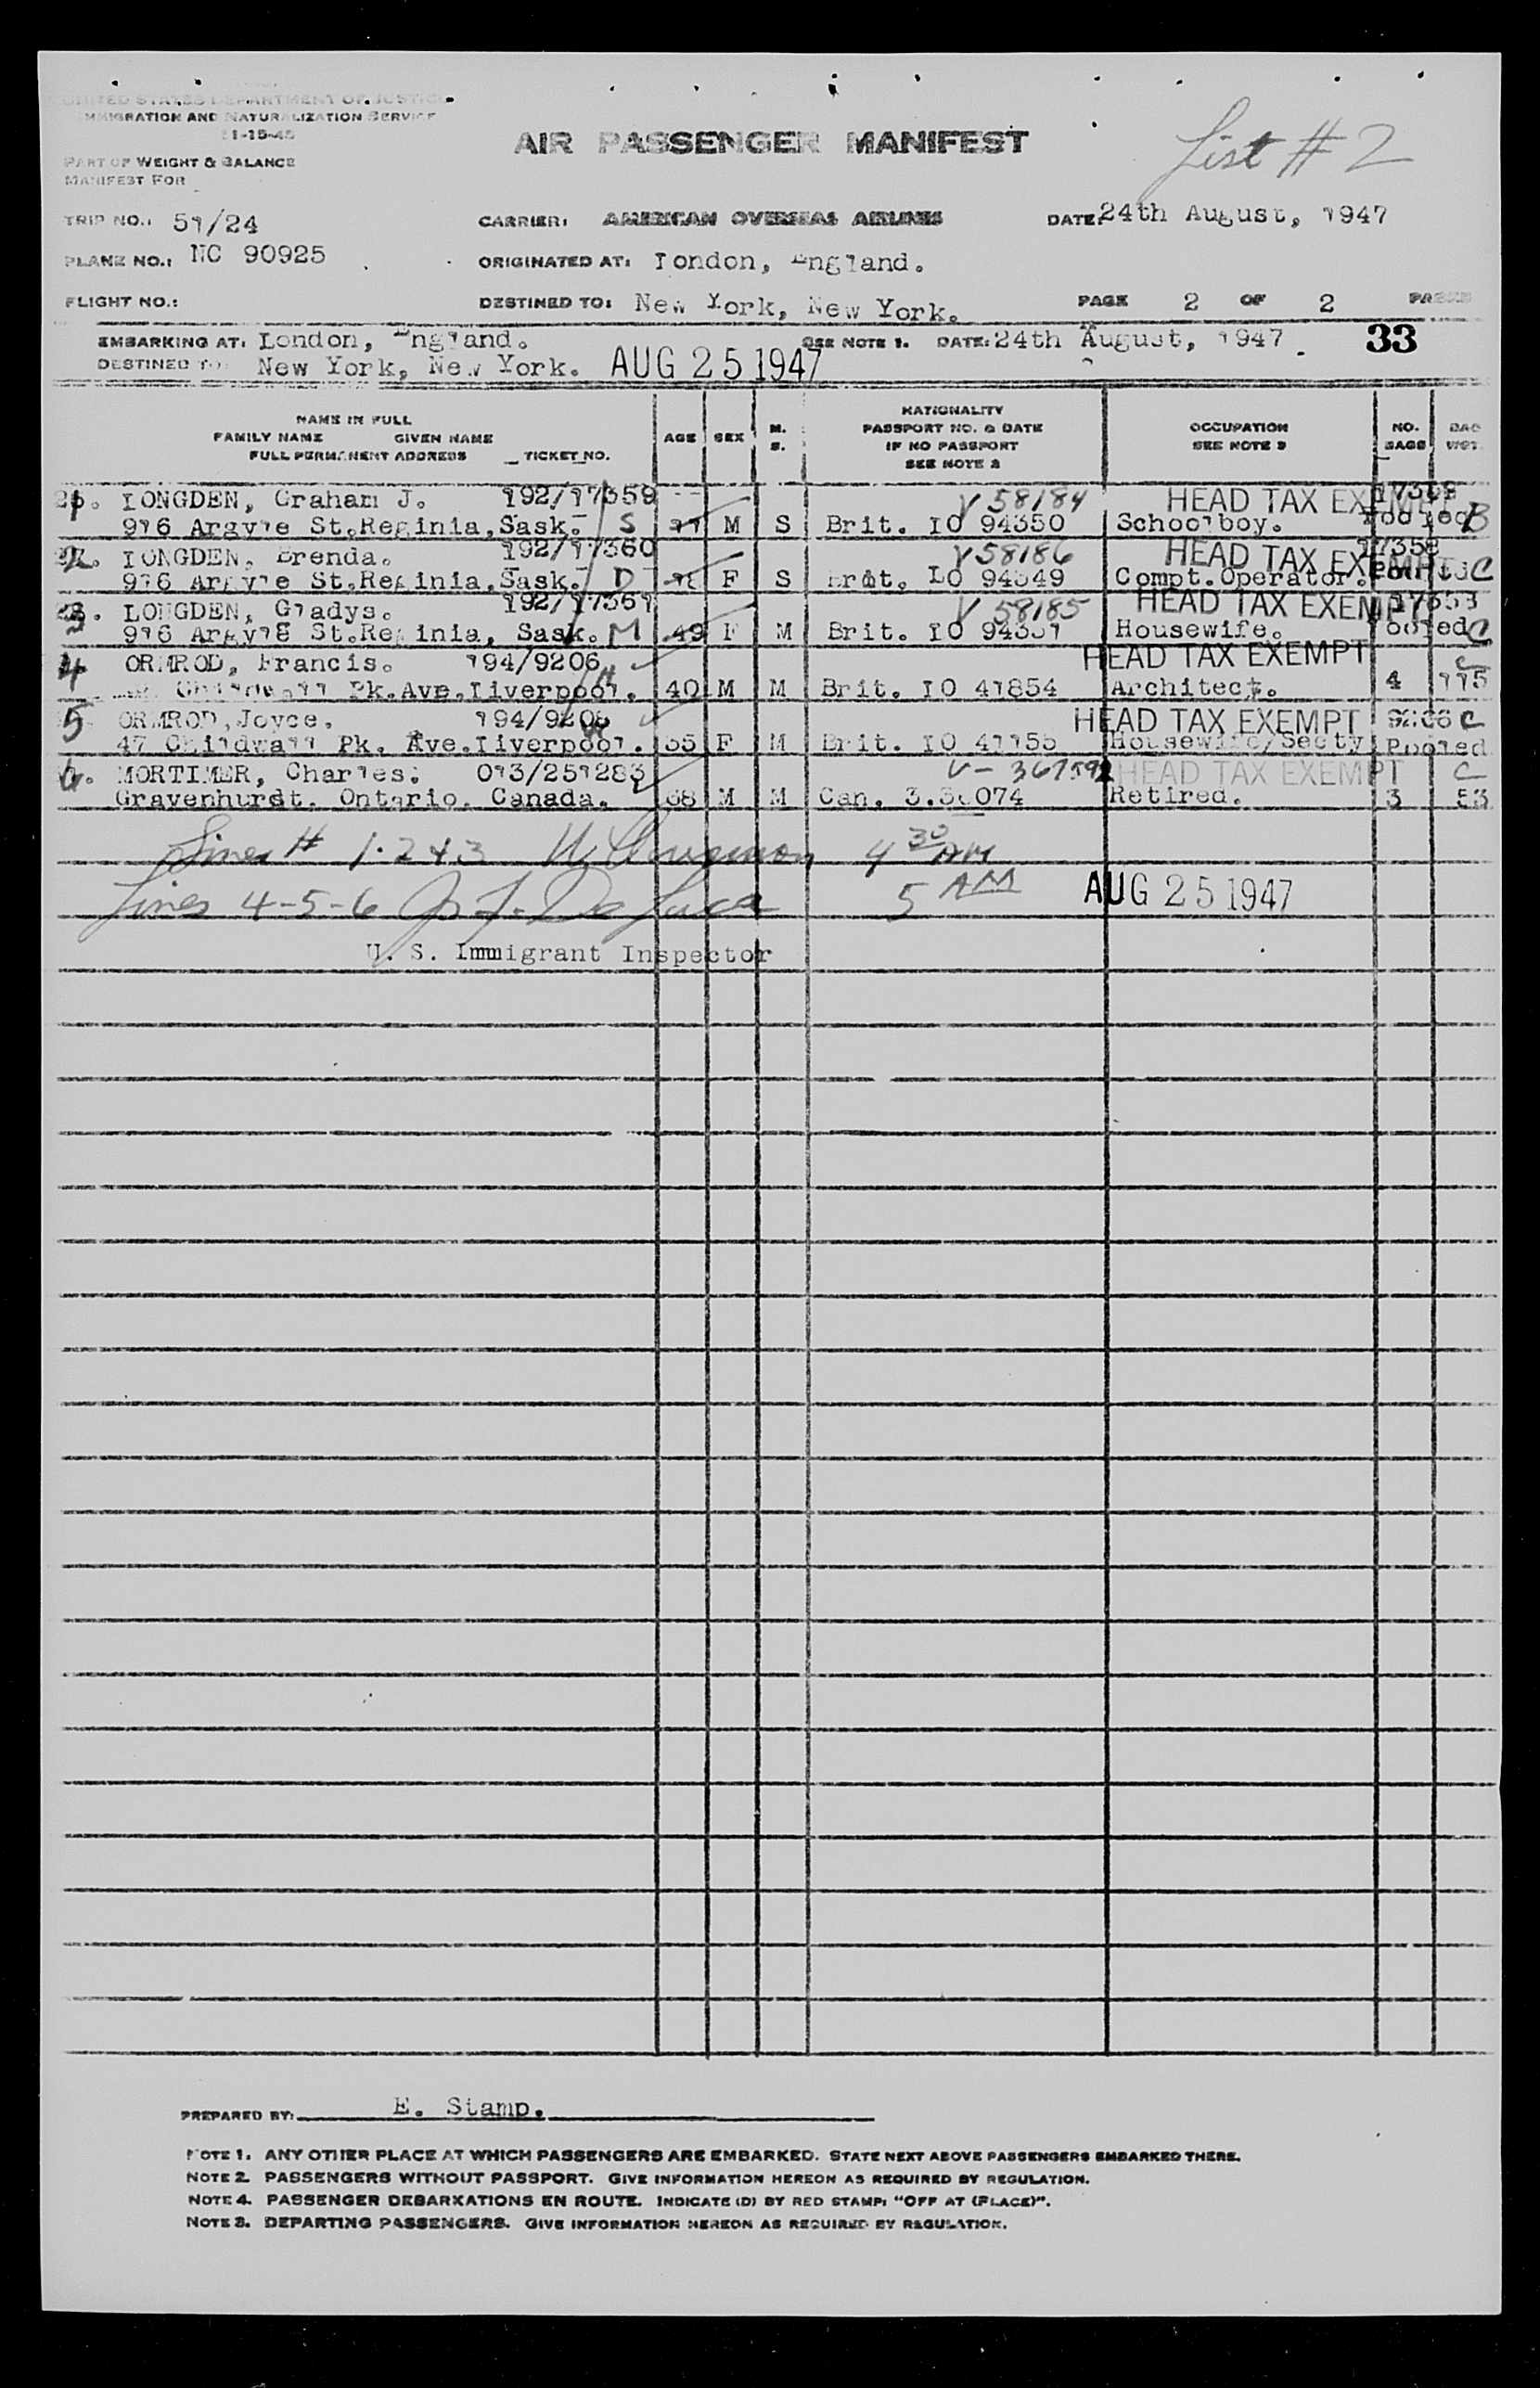 UNITED STATES DEPARTMENT OF JUSTICE
IMMIGRATION AND NATURALIZATION SERVICE
11-15-45
AIR PASSENGER MANIFEST
List # 2
PART OF WEIGHT & BALANCE
MANIFEST FOR
TRIP NO.: 51/24 CARRIER: AMERICAN OVERSEAS AIRLINES DATE: 24th August, 1947
PLANE NO.: NC 90925 ORIGINATED AT: London, England.
FLIGHT NO.: DESTINED TO: New York, New York. PAGE 2 OF 2 PAGES
EMBARKING AT: London, England. SEE NOTE 1. DATE: 24th August, 1947 33
DESTINED TO: New York, New York. AUG 25 1947
NAME IN FULL
FAMILY NAME GIVEN NAME
FULL PERMANENT ADDRESS TICKET NO.
AGE SEX M. S.
NATIONALITY
PASSPORT NO. & DATE
IF NO PASSPORT
SEE NOTE 2
OCCUPATION
SEE NOTE 3
NO. BAGS
BAG WGT.
1. LONGDEN, Graham J. 192/17359 V 58184 HEAD TAX EXEMPT
916 Argyle St.Reginia,Sask. S 11 M S Brit. LO 94350 Schoolboy. Pooled B
2. LONGDEN, Brenda. 192/17360 V 58186 HEAD TAX EXEMPT 17358
916 Argyle St.Reginia,Sask. D 18 F S Brit. LO 94349 Compt.Operator. Pooled C
3. LONGDEN, Gladys. 192/17361 V 58185 HEAD TAX EXEMPT
916 Argyle St.Reginia, Sask. M 49 F M Brit. LO 94351 Housewife. Pooled C
4 ORMROD, Francis. 194/9206 HEAD TAX EXEMPT C
Childwall Pk.Ave.Liverpool. 40 M M Brit. LO 41854 Architect. 4 115
5 ORMROD,Joyce. 194/9208 HEAD TAX EXEMPT 9206 C
47 Childwall Pk. Ave.Liverpool. 35 F M Brit. LO 41155 Housewife/Secty Pooled
6. MORTIMER, Charles. 013/251283 V- 367592 HEAD TAX EXEMPT C
Gravenhurst. Ontario. Canada. 68 M M Can. 3.36074 Retired. 3 53
Lines # 1.2 & 3 4 30 AM
Lines 4-5-6 De Luca 5 AM AUG 25 1947
U. S. Immigrant Inspector
PREPARED BY: E. Stamp.
NOTE 1. ANY OTHER PLACE AT WHICH PASSENGERS ARE EMBARKED. STATE NEXT ABOVE PASSENGERS EMBARKED THERE.
NOTE 2. PASSENGERS WITHOUT PASSPORT. GIVE INFORMATION HEREON AS REQUIRED BY REGULATION.
NOTE 4. PASSENGER DEBARKATIONS EN ROUTE. INDICATE (D) BY RED STAMP: "OFF AT (PLACE)".
NOTE 3. DEPARTING PASSENGERS. GIVE INFORMATION HEREON AS REQUIRED BY REGULATION.